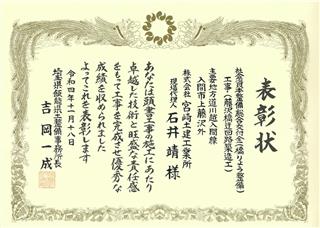 表彰状
社会資本整備総合交付金(循りょう整備)
工事(藤沢橋迂回路築造工)
主要地方道川越入間線
入間市上藤沢外
株式会社 宮崎土建工業所
現場代理人 石井靖様
あなたは頭書工事の施工にあたり
卓越した技術と旺盛な責任感
をもって工事を完成させ優秀な
成績を収められました
よってこれを表彰します
令和四年十一月十八日
埼玉県飯能県土整備事務所長
吉岡一成